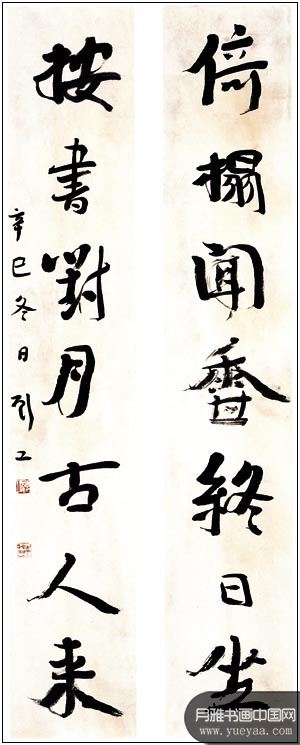 倚榻闻香終日坐
按書對月古人来
辛巳冬日
月雅书画中国网
www.yueyaa.com